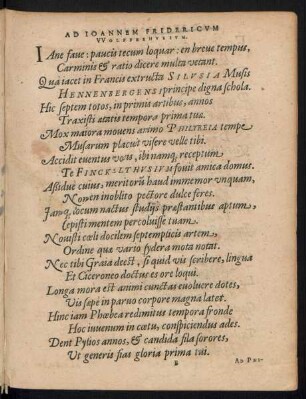 AD IOANNEM FRIDERICVM
VVOLFFERHVSIVM.
IAne faue: paucis tecum loquar: en breue tempus,
Carminis & ratio dicere multa vetant.
Quà iacet in Francis extructa SILVSIA Musis
HENNENBERGENsi principe digna schola.
Hic septem totos, in primis artibus, annos
Traxisti ætatis tempora prima tuæ.
Mox maiora mouens animo PHILYREIA tempe
Musarum placuit visere velle tibi.
Accidit euentus voti, ibi namq, receptum
Te FINCKELTHVSIVM fouit amica domus.
Assiduè cuius, meritorũ haud immemor vnquam,
Nomen inoblito pectore dulce feres.
Iamq, locum nactus studijs præstantibus aptum,
Cepisti mentem percoluisse tuam.
Nouisti cœli docilem septemplicis artem,
Ordine quæ vario sydera mota notat.
Nec tibi Graia deest, si quid vis scribere, lingua
Et Ciceroneo doctus es ore loqui.
Longa mora est animi cunctas euoluere dotes,
Vis sæpè in paruo corpore magna latet.
Hinc iam Phœbea redimitus tempora fronde
Hoc iuuenum in cœtu, conspiciendus ades.
Dent Pylios annos, & candida fila sorores,
Vt generis fias gloria prima tui.
B